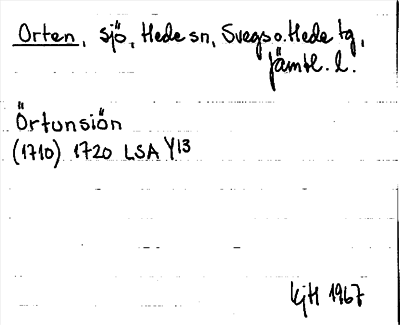 Orten, sjö, Hede sn, Svegs o. Hede tg,
Jämtl. l.
Örtunsiön
(1710) 1720 LSA Y13
KjH 1967